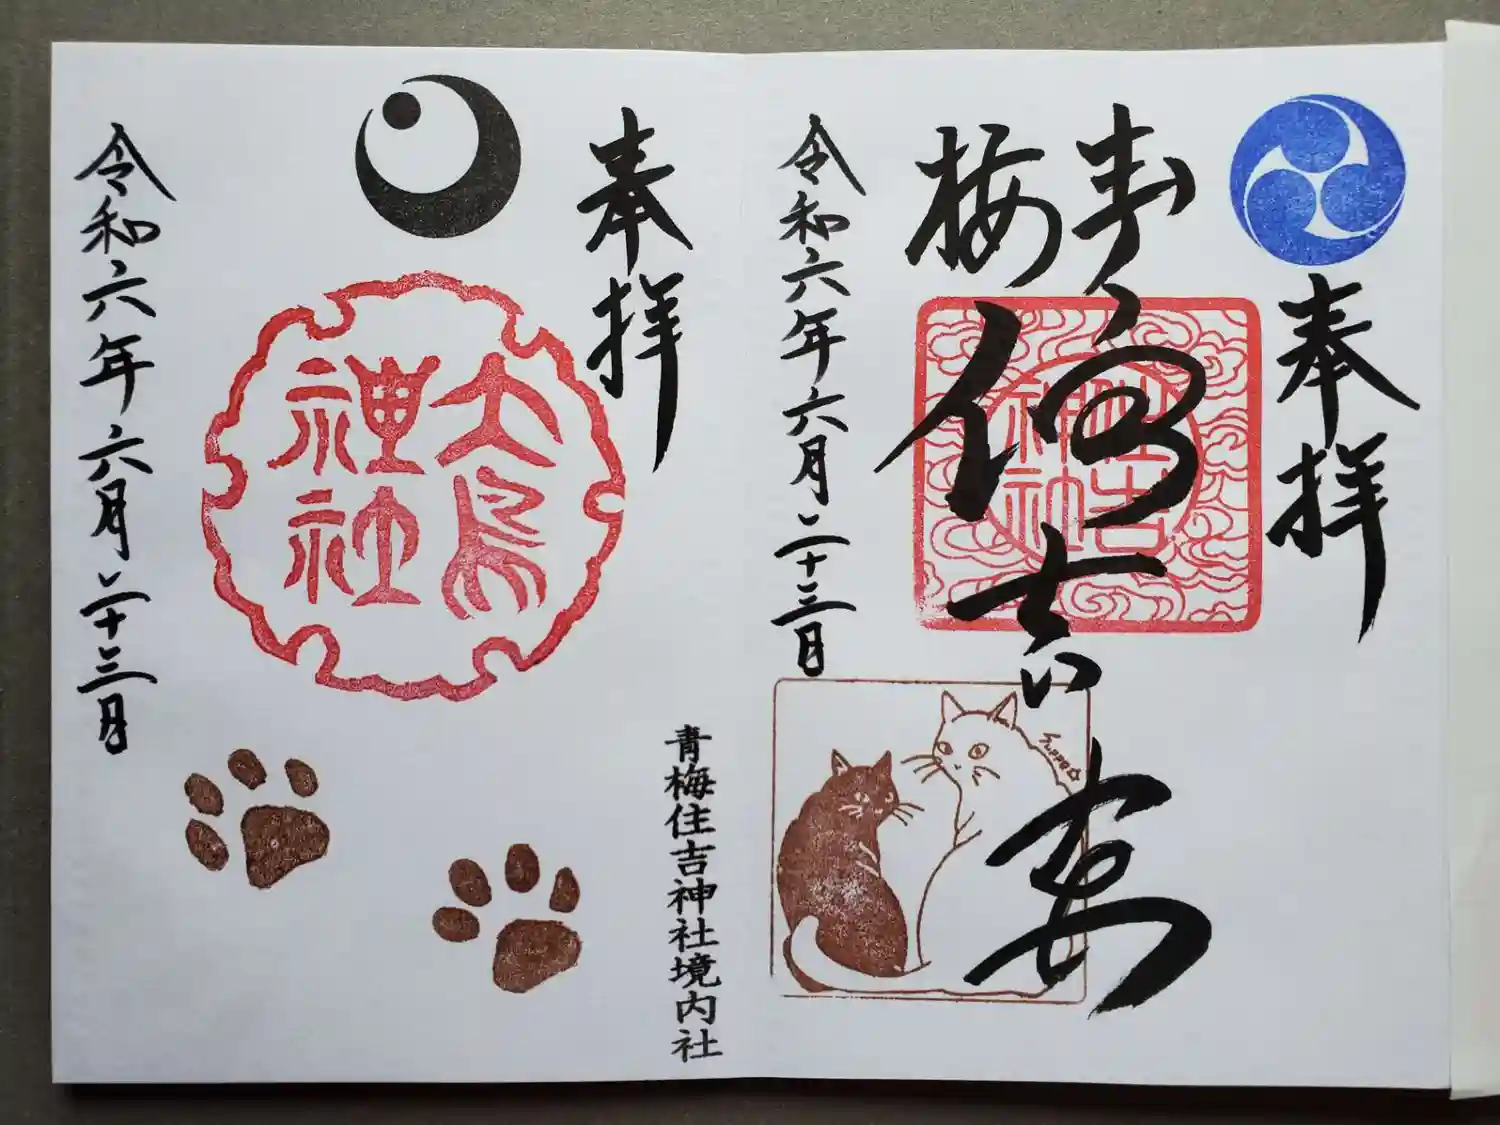 奉拝
住吉
神社
梅
令和六年六月二十三日
奉拝
大鳥
神社
令和六年六月二十三日
青梅住吉神社境内社